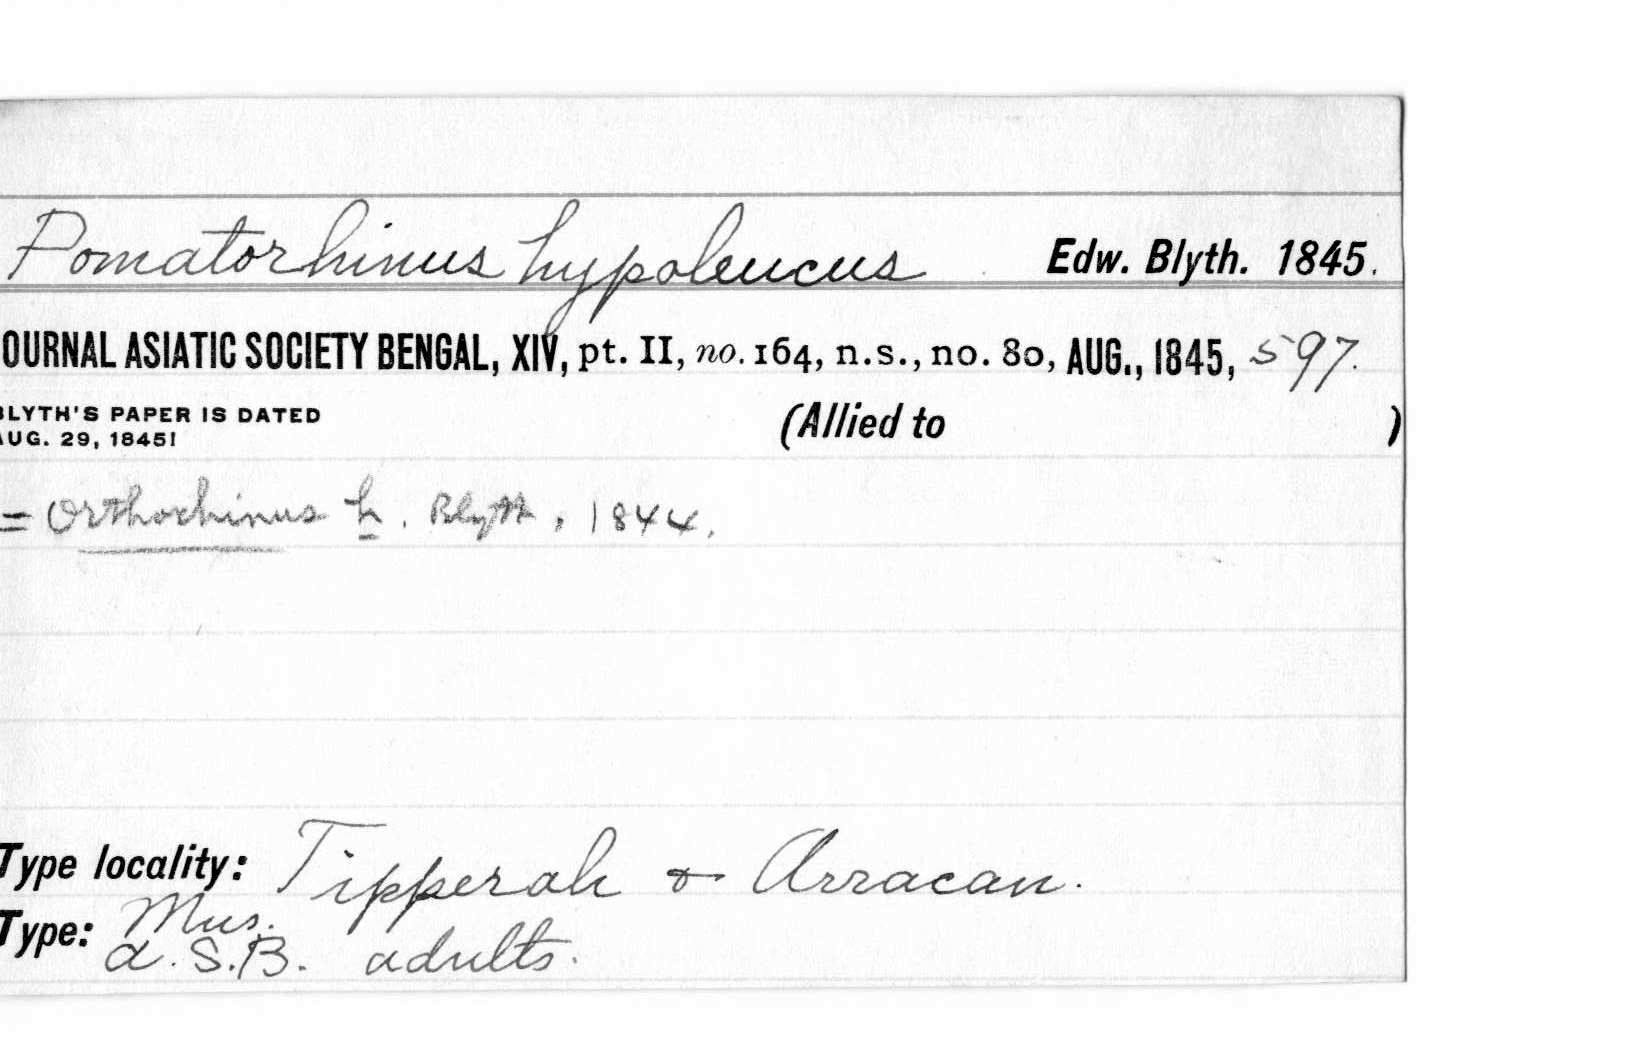 Pomatorhinus hypoleucus Edw. Blyth. 1845.
OURNAL ASIATIC SOCIETY BENGAL, XIV, pt. II, no. 164, n.s., no. 80, AUG., 1845, 597.
BLYTH'S PAPER IS DATED
AUG. 29, 1845!
(Allied to )
= Orthorhinus h. Blyth, 1844.
Type locality: Tipperah & Arracan.
Type: Mus.
A.S.B. adults.